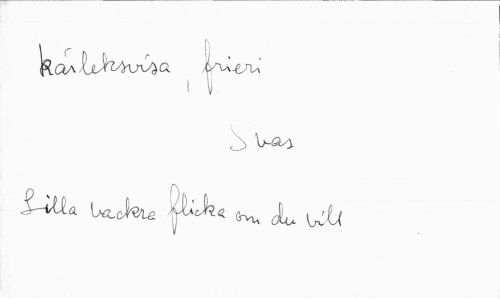 kärleksvisa, frieri
Svar
Lilla vackra flicka om du vill